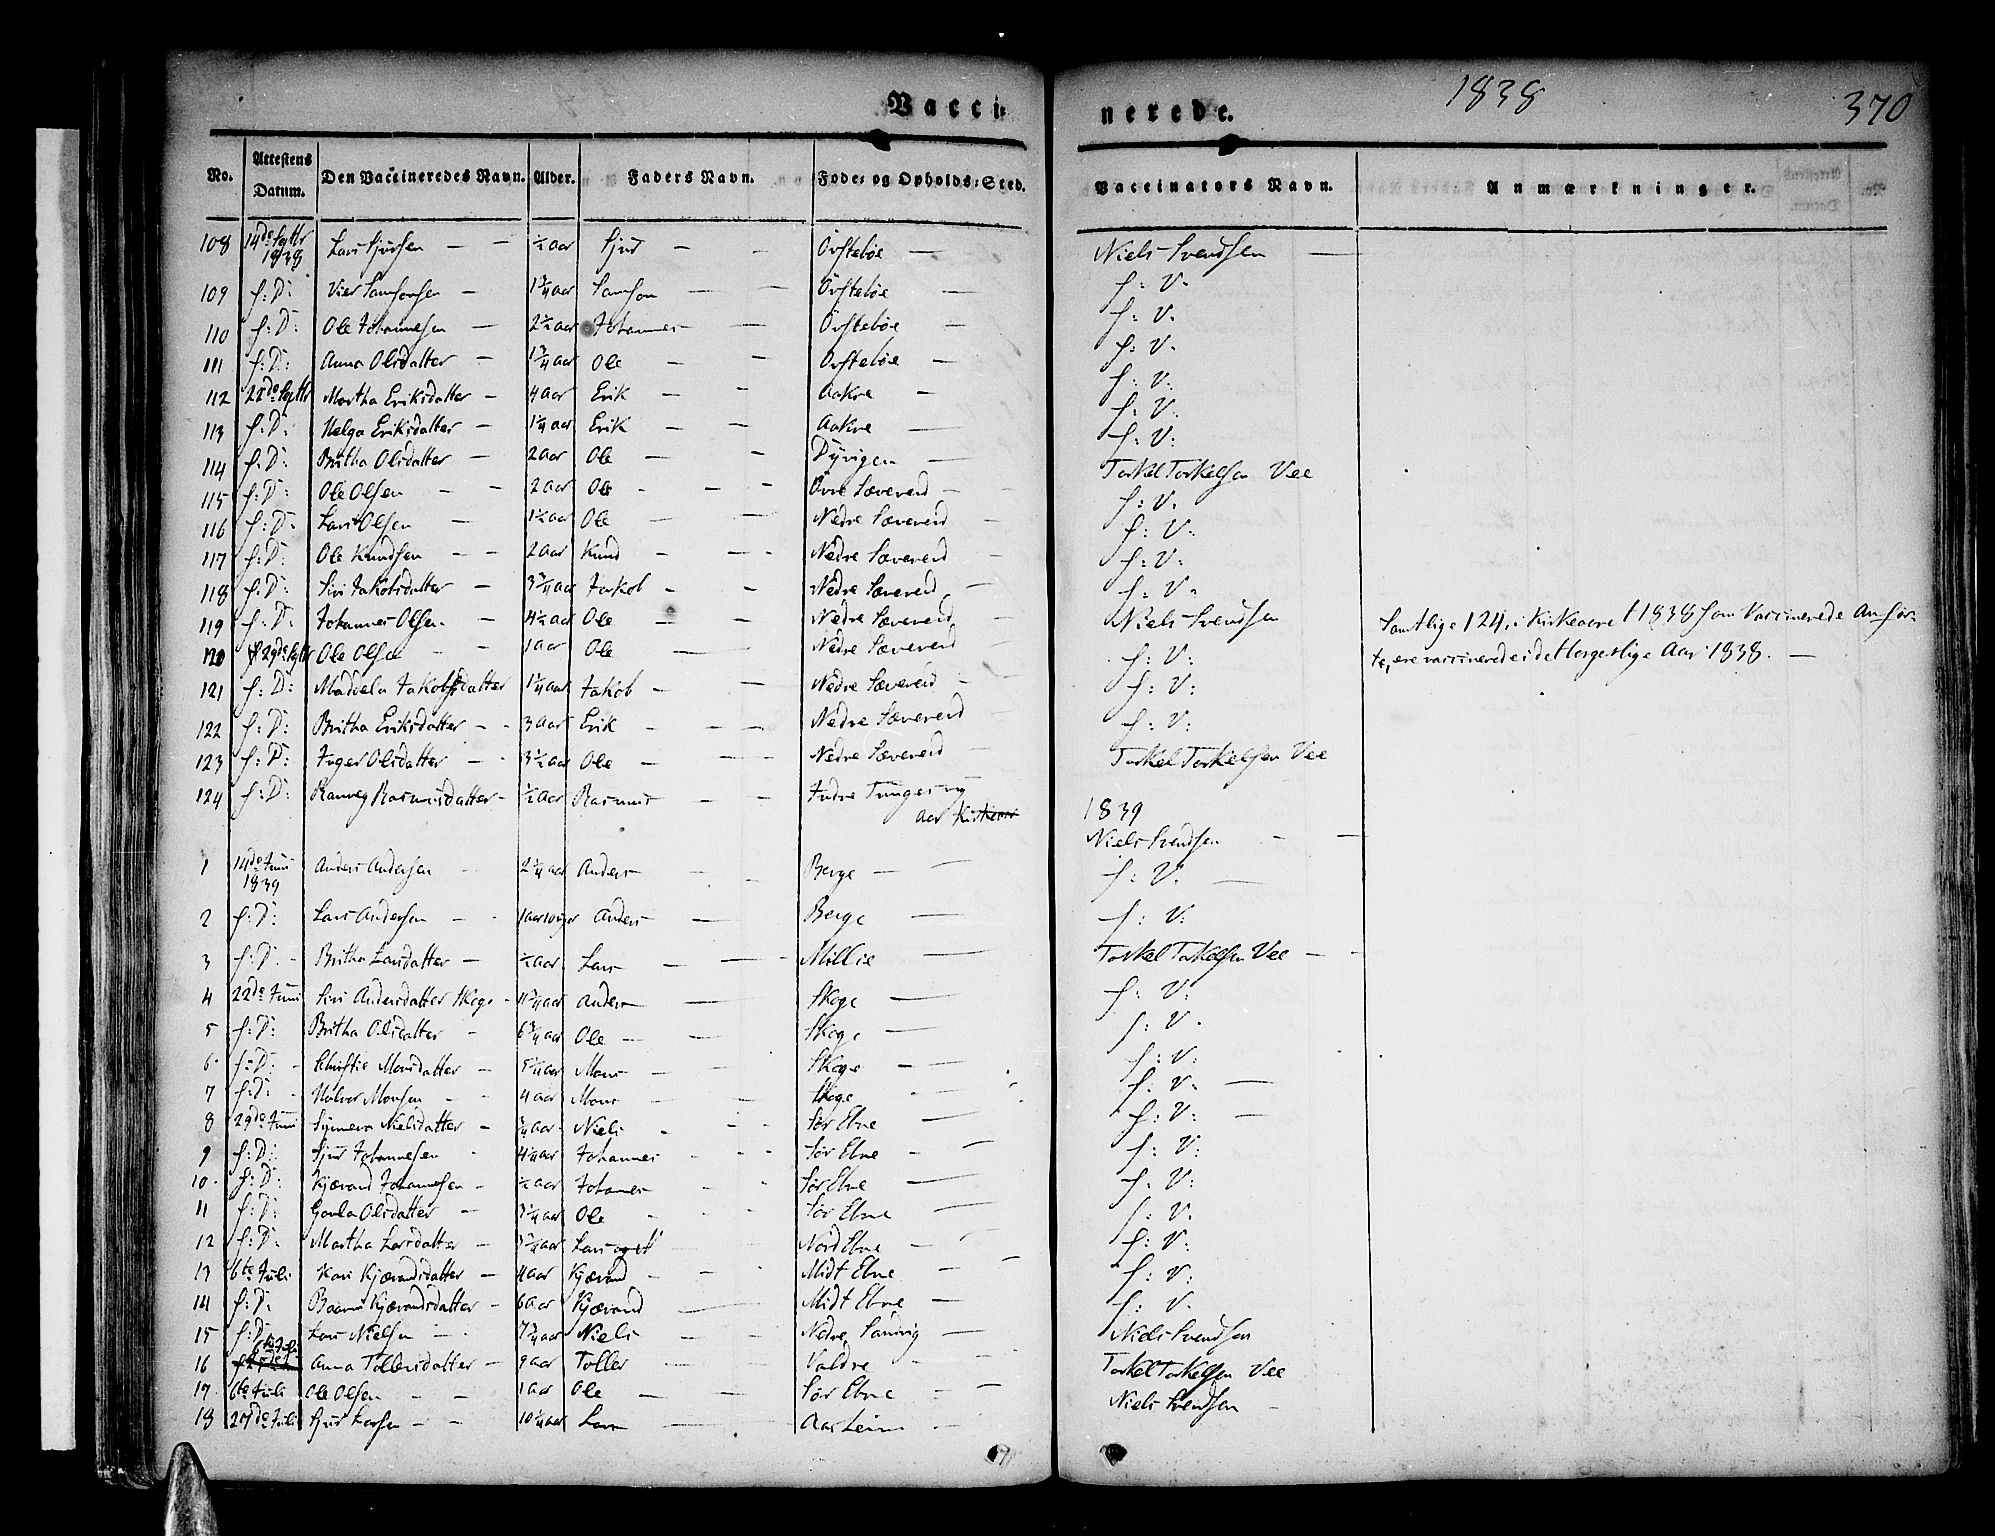 Vacci= nerede. 1838 370
No. Attestens Datum. Den Vaccineredes Navn. Alder. Faders Navn. Føde= og Opholds=Sted. Vaccinators Navn. Anmærkninger.
108 14de Septbr 1838 Lars Sjursen — — ½ aar Sjur — — Øvstebøe — Niels Svendsen —
109 s: D: Vier Samsonsen — 1¾ aar Samson — — Øvstebøe — s: V.
110 s: D: Ole Johannesen — 2½ aar Johannes — — Øvstebøe — s: V.
111 s: D: Anna Olsdatter — 1¾ aar Ole — — Øvstebøe — s: V.
112 22de Septbr Martha Eriksdatter — 4 aar Erik — — Aakre — s: V.
113 s: D: Helga Eriksdatter — 1¼ aar Erik — — Aakre — s: V.
114 s: D: Britha Olsdatter — 2 aar Ole — — Dyvigen — s: V:
115 s: D: Ole Olsen — — 2 aar Ole — — Øvre Sævereid — Torkel Torkelsen Vee
116 s: D: Lars Olsen — 1½ aar Ole — — Nedre Sævereid — s: V.
117 s: D: Ole Knudsen — — 2 aar Knud — — Nedre Sævereid — s: V.
118 s: D: Siri Jakobsdatter — 3¾ aar Jakob — — Nedre Sævereid — s: V:
119 s: D: Johannes Olsen — 4½ aar Ole — — Nedre Sævereid — s: V.
120 29de Septbr Ole Olsen — 1 aar Ole — Nedre Sævereid — Niels Svendsen Samtlige 124, i Kirkeaaret 1838 som Vaccinerede Anfør-
121 s: D: Madela Jakobsdatter 1¼ aar Jakob — Nedre Sævereid — s: V: te, ere vaccinerede i det borgerlige Aar 1838. —
122 s: D: Britha Eriksdatter — 3 aar Erik — — Nedre Sævereid — s: V:
123 s: D: Inger Olsdatter — 3½ aar Ole — — Nedre Sævereid — s: V:
124 s: D: Ranveg Rasmusdatter — ½ aar Rasmus — — Indre Tungesvig Torkel Torkelsen Vee
Aar 1839
1 14de Juni 1839 Anders Andersen 2¼ aar Anders — Berge — Niels Svendsen —
2 s: D: Lars Andersen — 1 aar 10 uger Anders — Berge — s: V:
3 s: D. Britha Larsdatter — ½ aar Lars — — Millie — s: V:
4 22de Juni Siri Andersdatter Skoge — aar Anders — Skoge — Torkel Torkelsen Vee —
5 s: D: Britha Olsdatter — 6¾ aar Ole — Skoge — s: V:
6 s: D: Christie Monsdatter — aar Mons — Skoge — s: V.
7 s: D: Halvor Monsen — 4 aar Mons — Skoge — s: V:
8 29de Juni Synneva Nielsdatter — ¾ aar Niels — Sør Ebne — s: V. —
9 s: D: Sjur Johannesen 4¼ aar Johannes — Sør Ebne — s: V: —
10 s: D: Kjærand Johannesen — ½ aar Johannes — Sør Ebne — s: V:
11 s: D: Gonla Olsdatter — 3¼ aar Ole — Sør Ebne — s: V:
12 s: D. Martha Larsdatter — aar Lars Nord Ebne — s: V.
13 6te Juli Kari Kjærandsdatter — 4 aar Kjærand — Midt Ebne — s: V:
14 s: D. Kjærandsdatter — 6 aar Kjærand — Midt Ebne — s: V:
15 s: D. Lars Nielsen — 7¾ aar Niels — Nedre Sandvig — s: V.
16 6te Juli Anna Tollersdatter — 9 aar Toller — Valdre — Niels Svendsen
17 6te Juli Ole Olsen — — 1 aar Ole — — Sør Ebne — Torkel Torkelsen Vee
18 27de Juli Sjur Larsen — — 10¼ aar Lars — Aarheim — Niels Svendsen